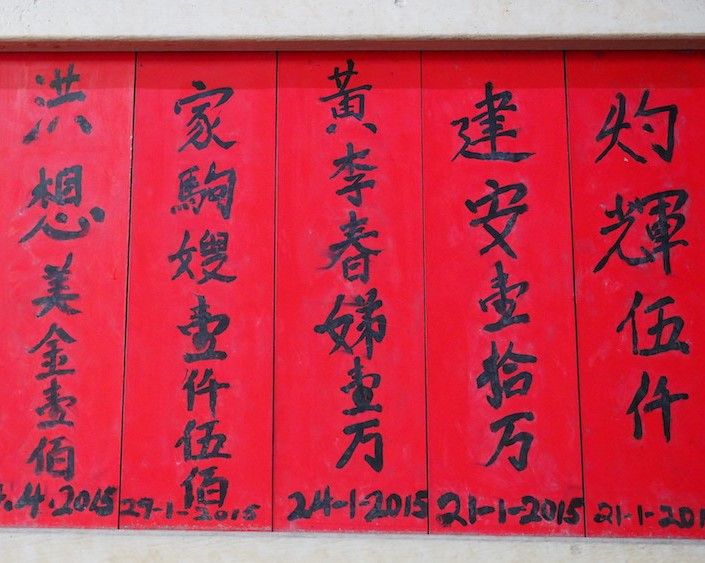 灼輝伍仟
21-1-201
建安壹拾万
21-1-2015
黃李春娣壹万
24-1-2015
家駒嫂壹仟伍佰
29-1-2015
洪想美金壹佰
.4.2015